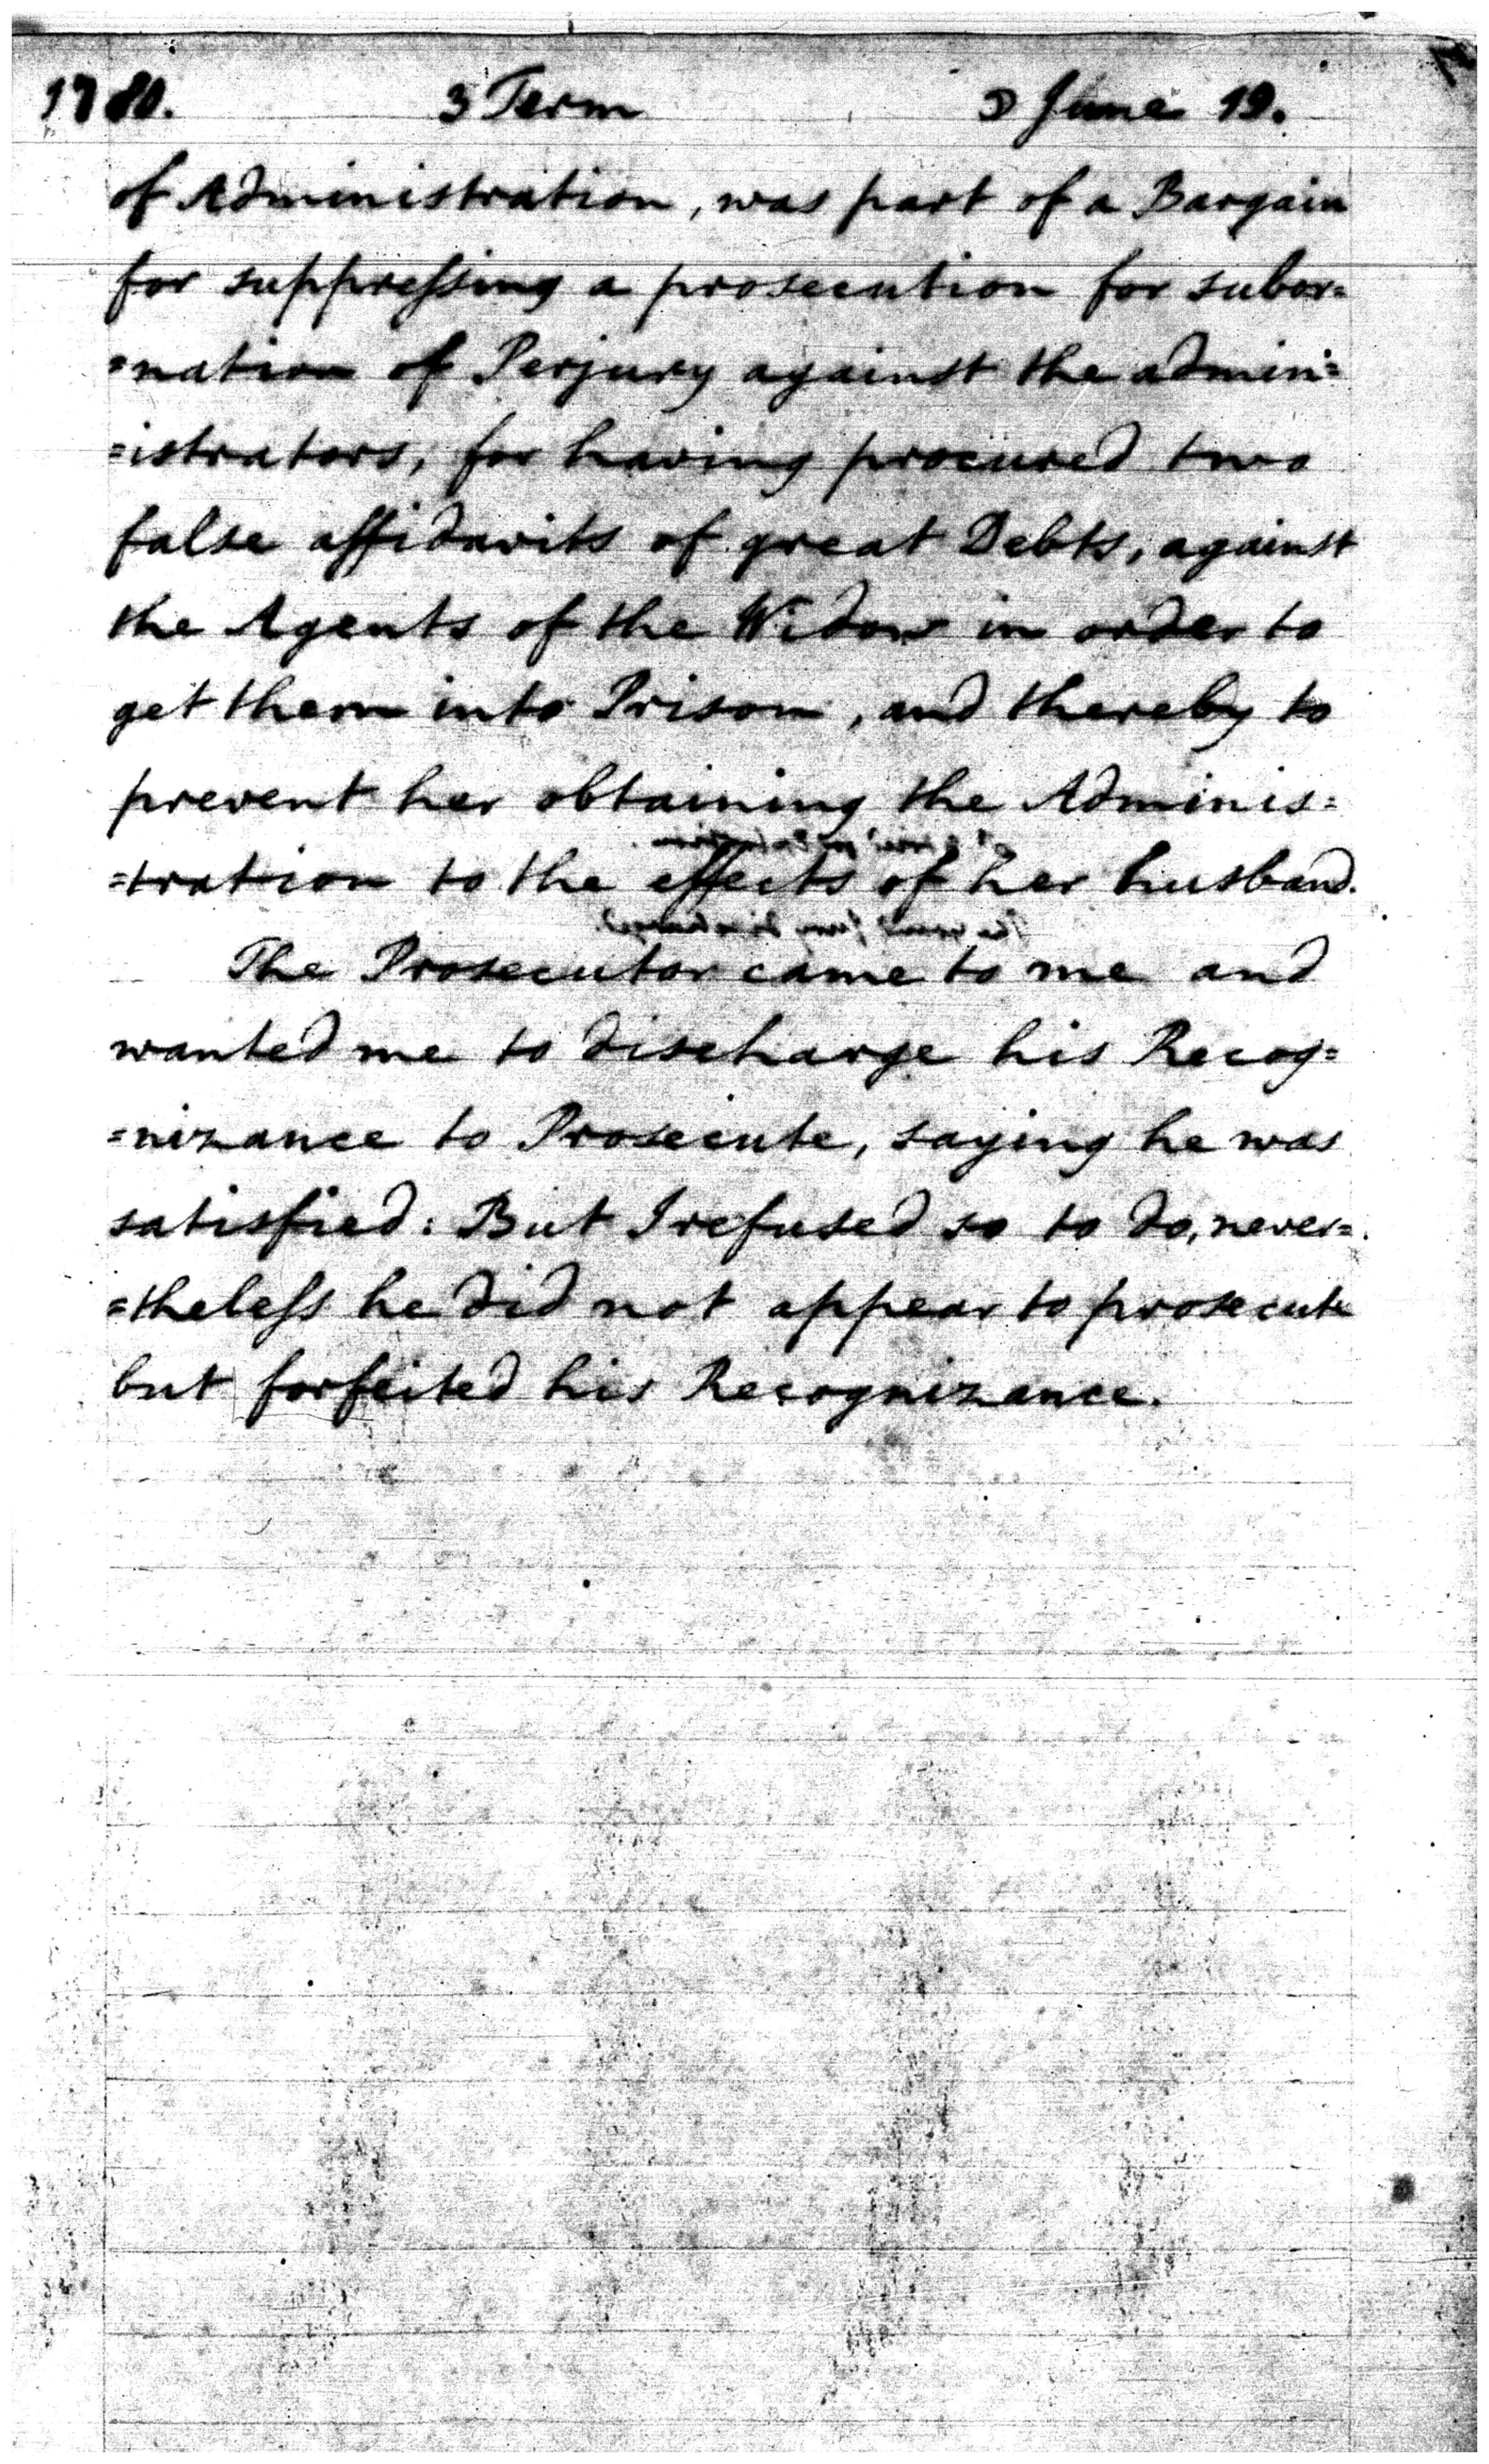 1780. 3 Term ☽ June 19.
of Administration, was part of a Bargain
for suppreſsing a prosecution for subor=
=nation of Perjury against the admin=
=istrators, for having procured two
false affidavits of great Debts, against
the Agents of the Widow in order to
get them into Prison, and thereby to
prevent her obtaining the Adminis=
=tration to the effects of her husband.
The Prosecutor came to me and
wanted me to discharge his Recog=
=nizance to Prosecute, saying he was
satisfied: But I refused so to do, never=
=theleſs he did not appear to prosecute
but forfeited his Recognizance.